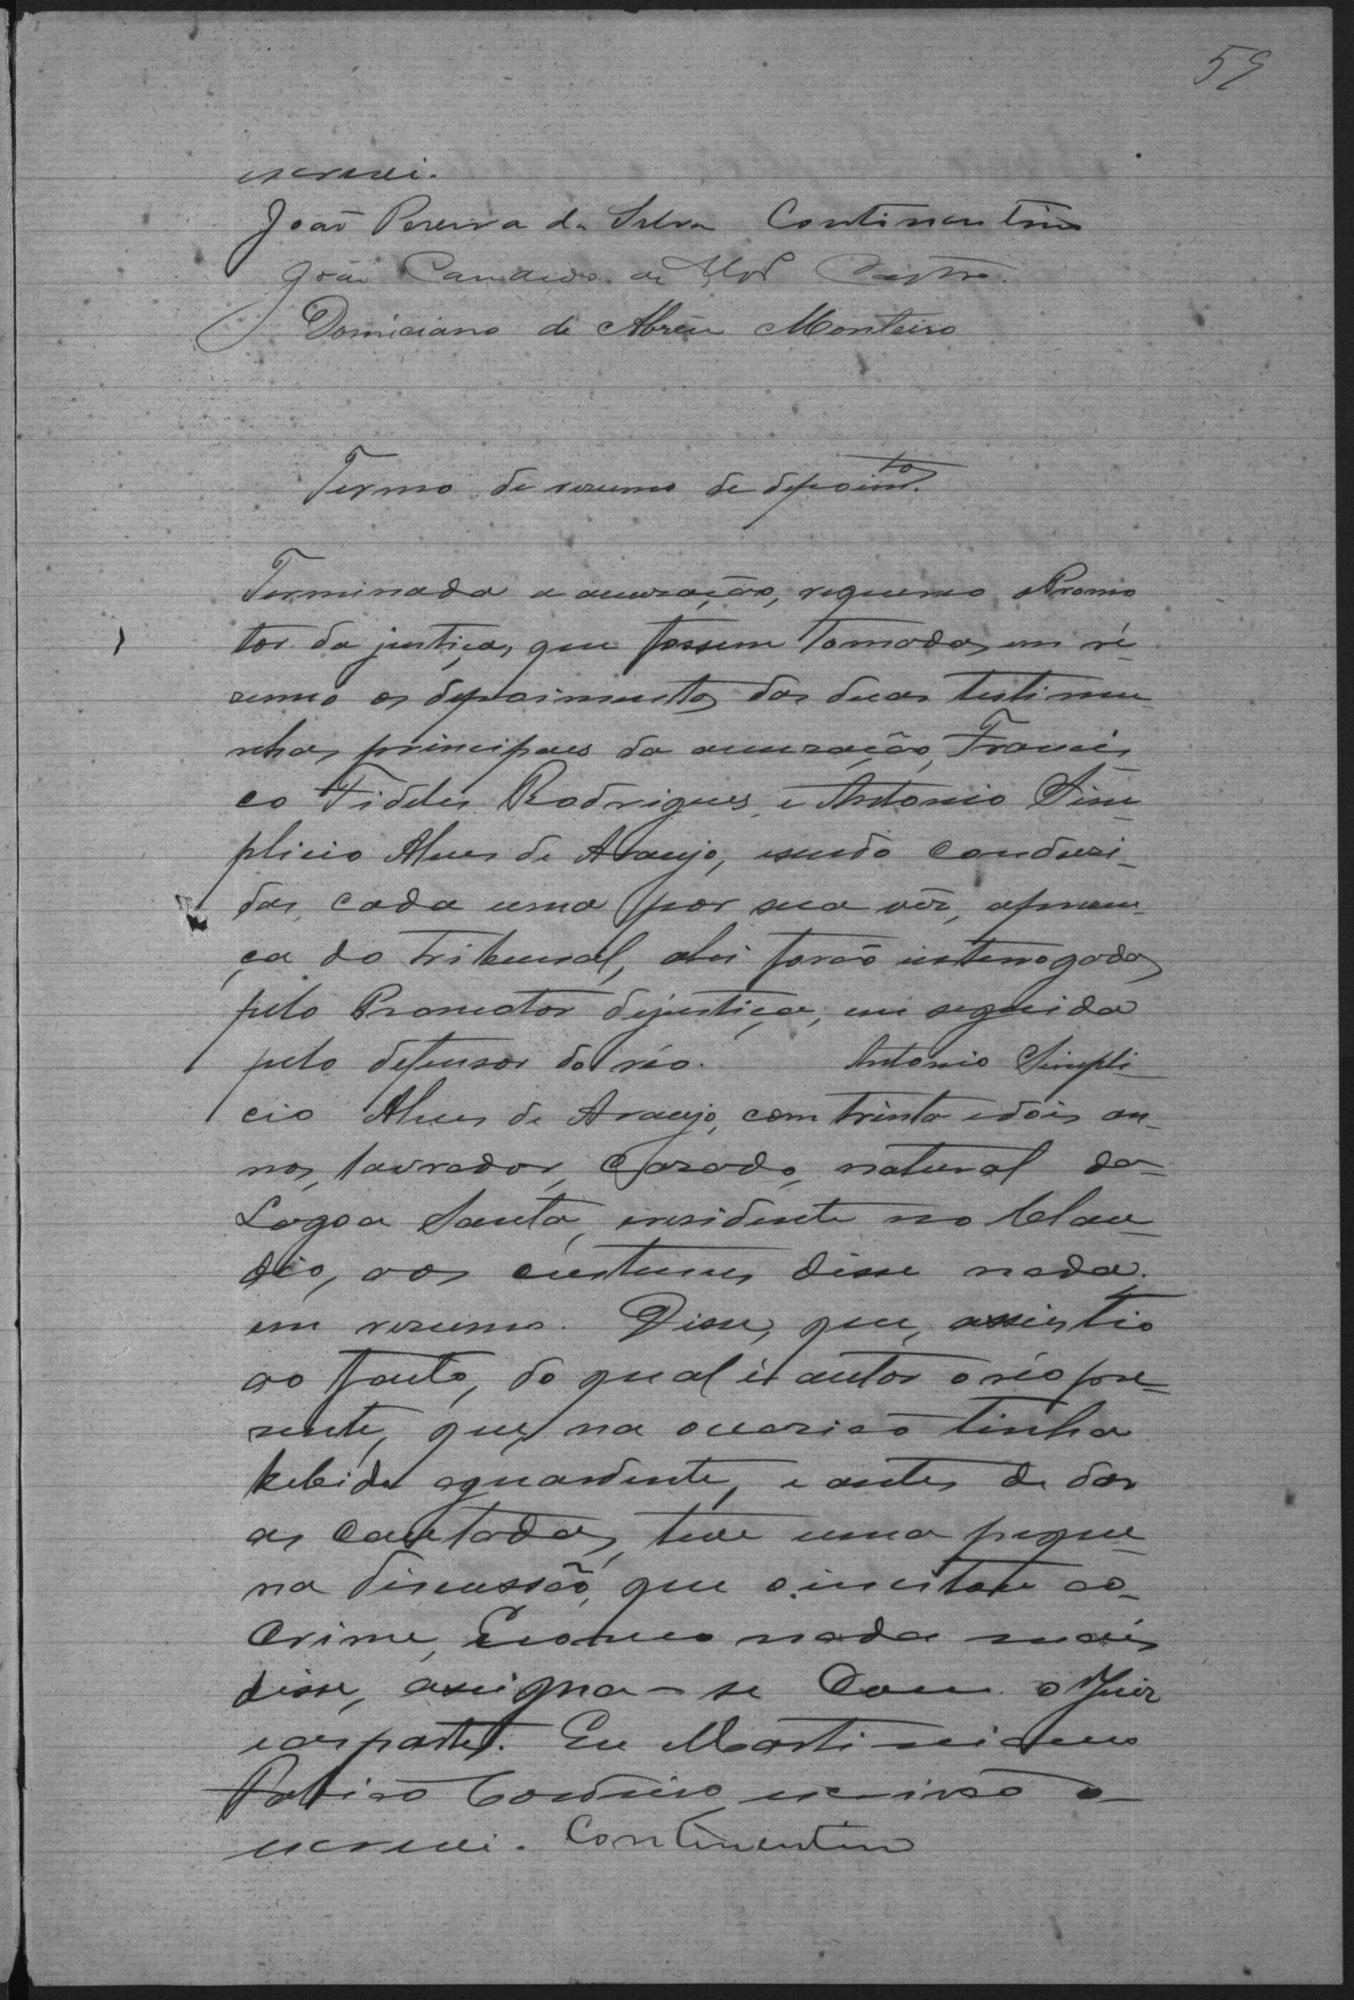 59
escrevi.
João Pereira da Silva Continentino
João Candido de Castro.
Domiciano de Abreu Monteiro
Termo de resumo de depoimto.
Terminada a accuzação, requereo o Promo
tor da justiça, que fossem tomados em re-
zumo os depoimentos das duas testimu-
nhas principaes da accuzação, Francis
co Fideles Rodrigues, e Antonio Sim-
plicio Alves de Araujo, sendo conduzi-
das, cada uma por sua vêz, a prezen-
ça do tribunal, ahi forão interrogados
pelo Promotor dejustiça, em seguida
pelo defensor do réo. Antonio Simpli-
cio Alves de Araujo, com trinta edois an-
nos, lavrador, Cazado, natural da-
Lagoa Santa, eresidente no Clau-
dio, aos custumes disse nada.
em rezumo. Disse, que, assistio
ao facto, do qual é autor o réo pre-
zente, que, na occazião tinha
bebido aguardente, e antes de dar
as cacetadas, teve uma peque-
na discussão, que o incitou ao-
Crime, Ecomo nada mais
disse, assigna-se Com o Juiz
easpartes. Eu Martiniano
Cordeiro escrivão o-
escrevi. Continentino